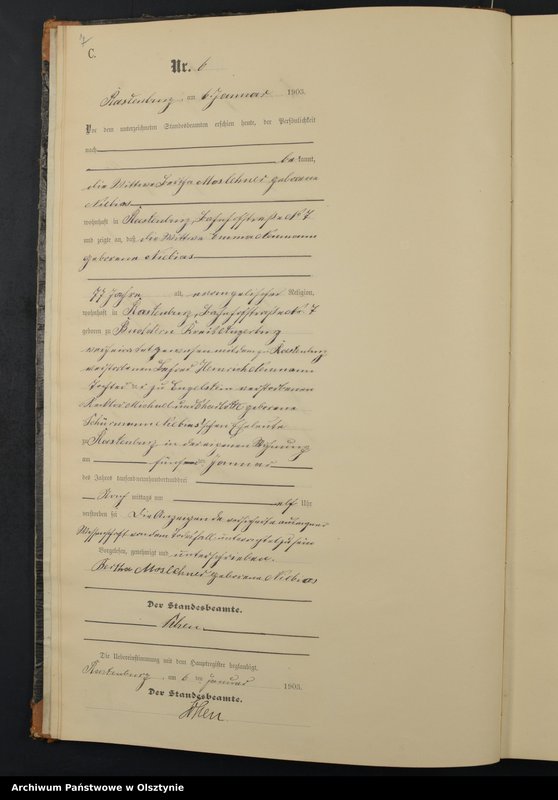 C.
Nr. 6
Rastenburg, am 6. Januar 1903.
Vor dem unterzeichneten Standesbeamten erschien heute, der Persönlichkeit
nach
be kannt,
die Wittwe Bertha Moslehner geborene
wohnhaft in Rastenburg, Bahnhofstraße № 7
und zeigte an, daß die Wittwe Emma Neumann
geborene
77 Jahre alt, evangelischer Religion,
wohnhaft in Rastenburg, Bahnhofstraße № 7
geboren zu Kreis Angerburg
verheirathet gewesen mit dem zu Rastenburg
verstorbenen Lehrer Heinrich Neumann
Tochter der zu Engelstein verstorbenen
Rektor Michael und Charlotte geborene
Schürmann Eheleute
zu Rastenburg in der eigenen Wohnung
am fünften Januar
des Jahres tausendneunhundertunddrei
Vor mittags um elf Uhr
verstorben sei. Die Anzeigende versicherte aus eigener
Wissenschaft von dem Todesfall unterrichtet zu sein
Vorgelesen, genehmigt und unterschrieben.
Bertha Moslehner geborene
Der Standesbeamte.
Die Uebereinstimmung mit dem Hauptregister beglaubigt.
Rastenburg, am 6 ten Januar 1903.
Der Standesbeamte.
Archiwum Państwowe w Olsztynie